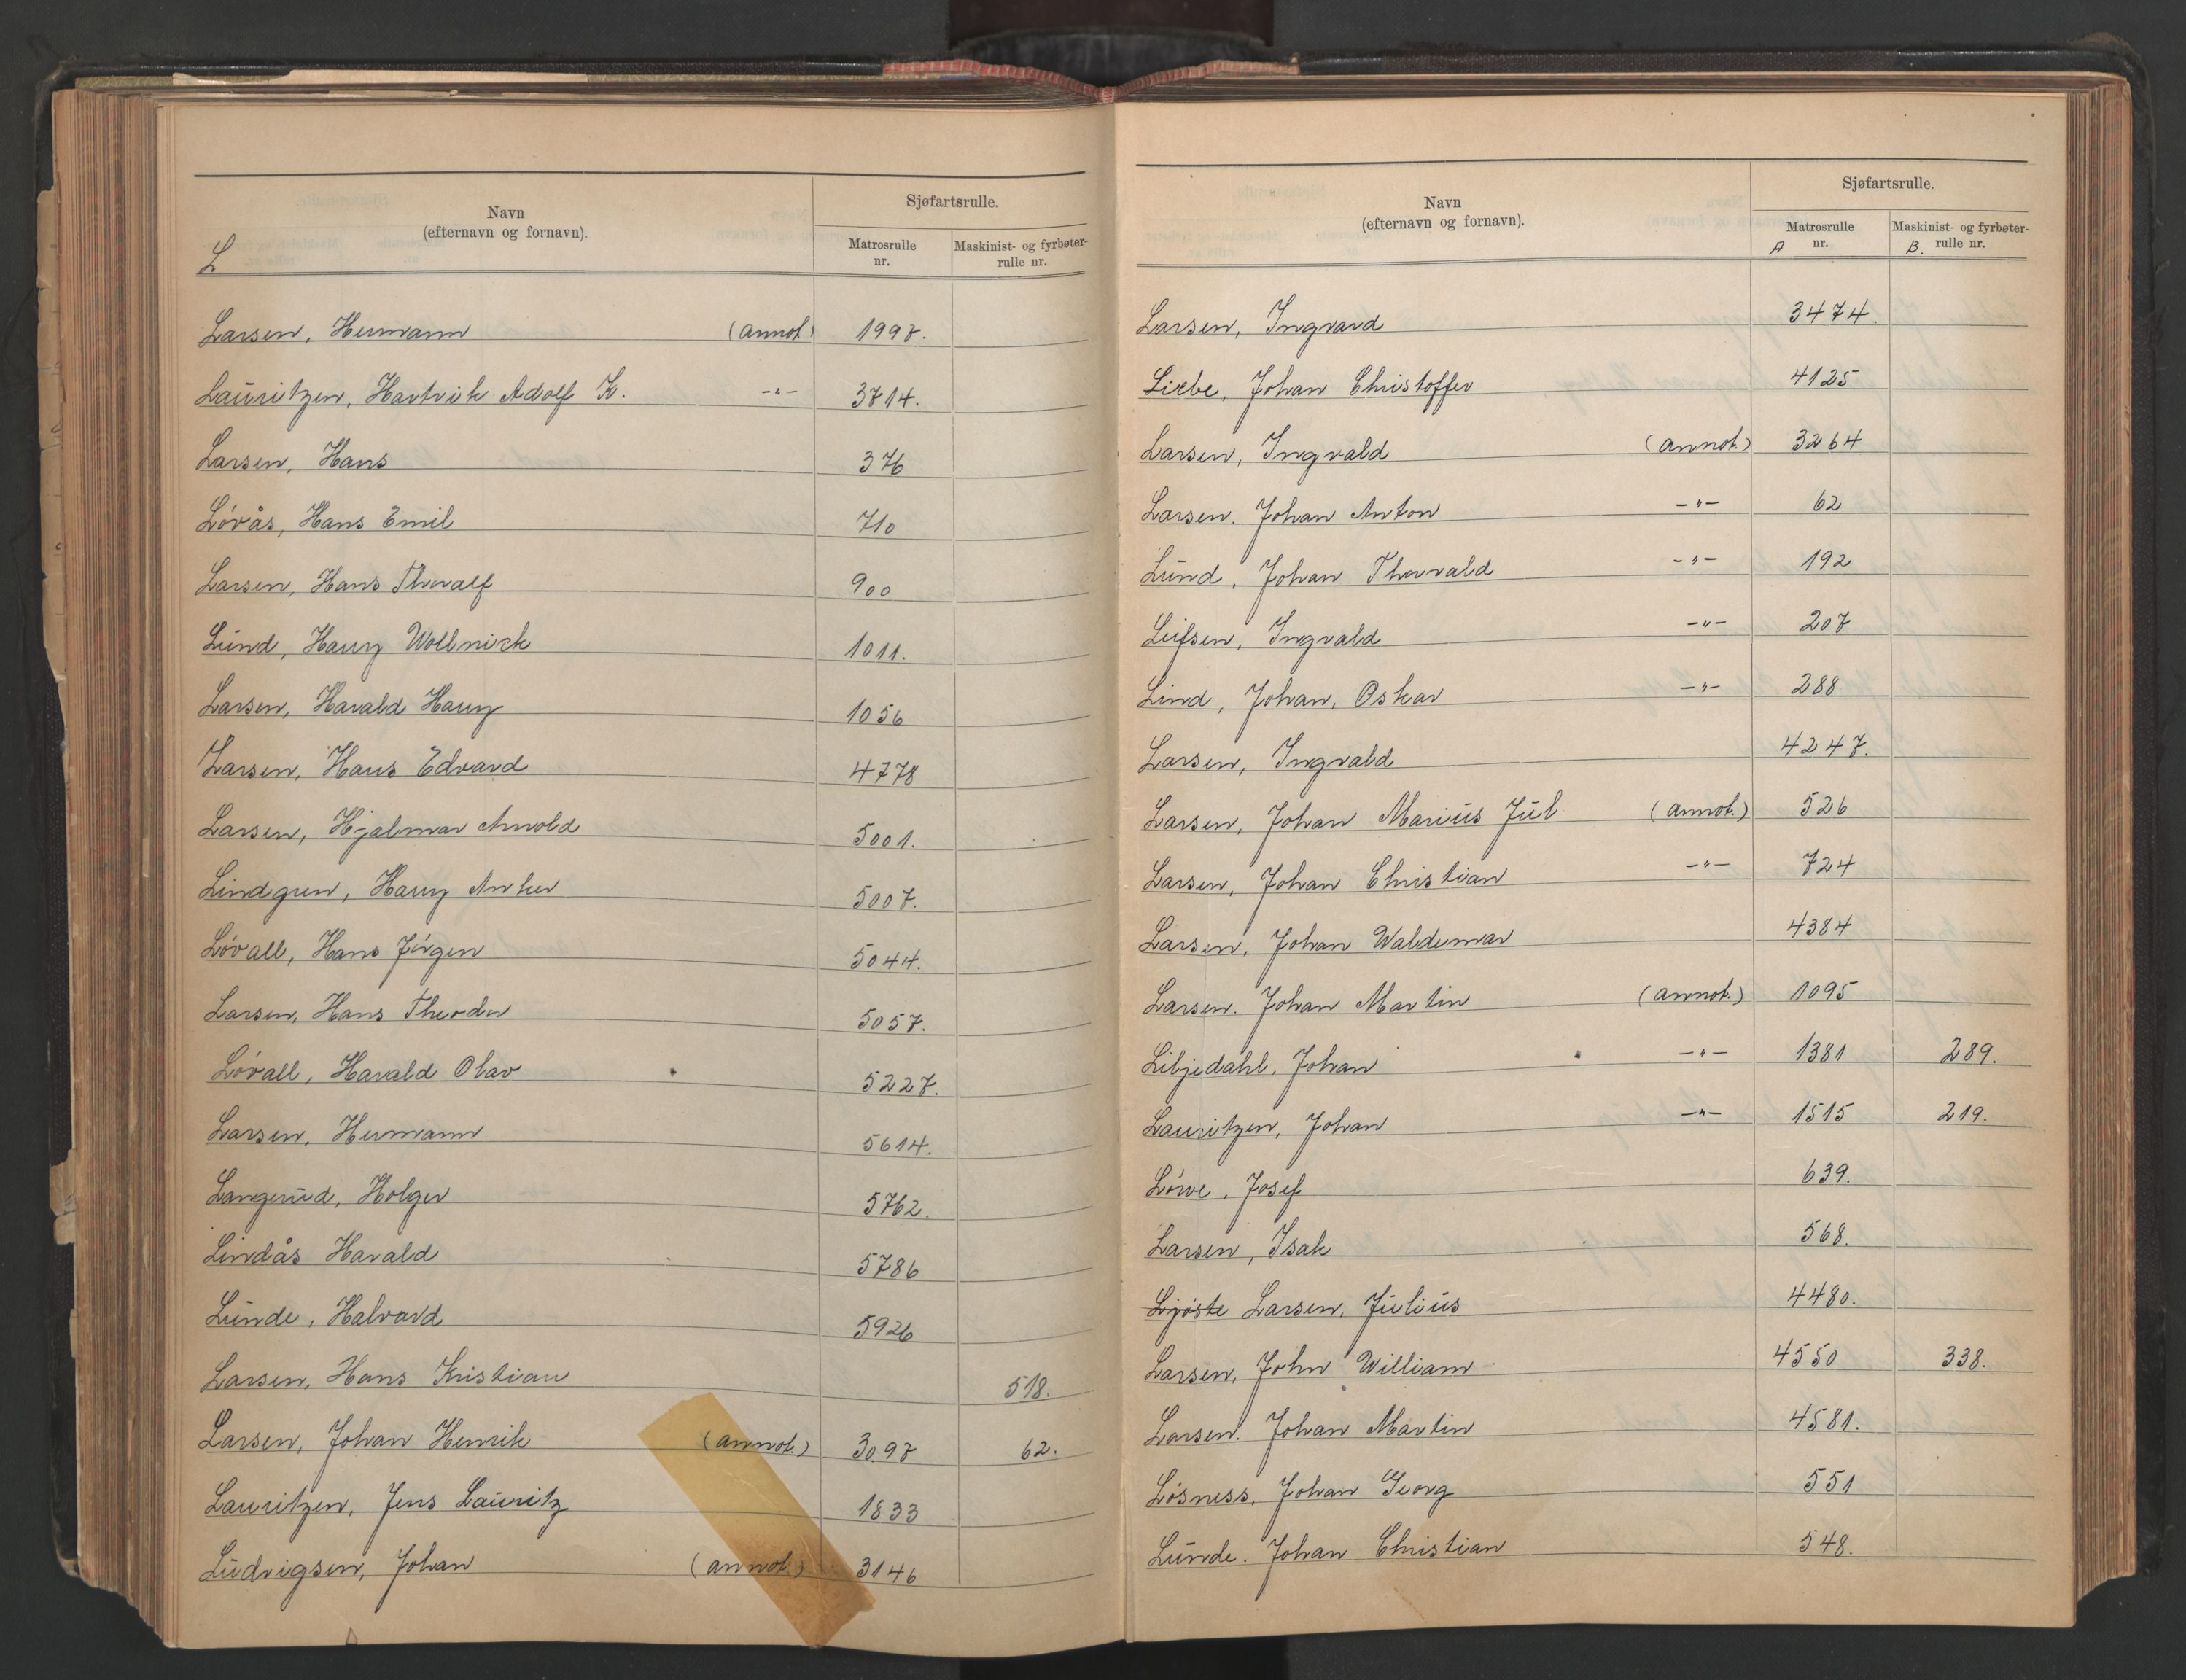 Navn
(efternavn og fornavn).
Sjøfartsrulle.
Matrosrulle nr.
Maskinist- og fyrbøter-rulle nr.
L
Larsen, Hermann (annot) 1997.
Lauritzen, Hartvik Adolf K. -"- 3714.
Larsen, Hans 376
Løvås, Hans Emil 710
Larsen, Hans Thoralf 900
Lund, Harry Wollnick 1011.
Larsen, Harald Harry 1056
Larsen, Hans Edvard 4778
Larsen, Hjalmar Arnold 5001.
Lindgren, Harry Anker 5007.
Løvall, Hans Jørgen 5044.
Larsen, Hans Theodor 5057.
Løvall, Harald Olav 5227.
Larsen, Hermann 5614.
Langerud, Holger 5762.
Lindås Harald 5786
Lunde, Halvard 5926
Larsen, Hans Kristian 518.
Larsen, Johan Henrik (annot.) 3097 62.
Lauritzen, Jens Lauritz 1833
Ludvigsen, Johan (annot.) 3146
Navn
(efternavn og fornavn).
Sjøfartsrulle.
Matrosrulle nr. A
Maskinist- og fyrbøter-rulle nr. B.
Larsen, Ingvard 3474.
Liebe, Johan Christoffer 4125
Larsen, Ingvald (annot.) 3264
Larsen. Johan Anton -"- 62
Lund, Johan Thorvald -"- 192
Leifsen, Ingvald -"- 207
Lind, Johan, Oskar -"- 288
Larsen, Ingvald 4247.
Larsen, Johan Marius Jul (annot.) 526
Larsen, Johan Christian -"- 724
Larsen, Johan Waldemar 4384
Larsen. Johan Martin (annot.) 1095
Liljedahl, Johan -"- 1381 289.
Lauritzen, Johan -"- 1515 219.
Løwe, Josef 639.
Larsen, Isak 568.
Ljøste Larsen, Julius 4480.
Larsen, John William 4550 338.
Larsen. Johan Martin 4581.
Løsness, Johan Georg 551
Lunde. Johan Christian 548.